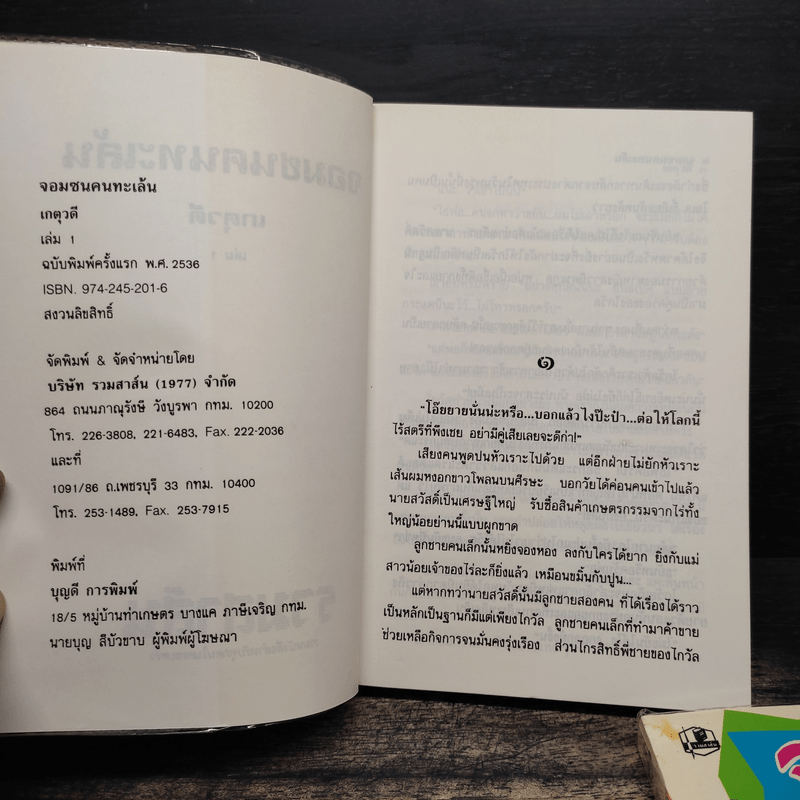 จอมซนคนทะเล้น
เกตุวดี
เล่ม 1
ฉบับพิมพ์ครั้งแรก พ.ศ. 2536
ISBN. 974-245-201-6
สงวนลิขสิทธิ์
จัดพิมพ์ & จัดจำหน่ายโดย
บริษัท รวมสาส์น (1977) จำกัด
864 ถนนภาณุรังษี วังบูรพา กทม. 10200
โทร. 226-3808, 221-6483, Fax. 222-2036
และที่
1091/86 ถ.เพชรบุรี 33 กทม. 10400
โทร. 253-1489, Fax. 253-7915
พิมพ์ที่
บุญดี การพิมพ์
18/5 หมู่บ้านท่าเกษตร บางแค ภาษีเจริญ กทม.
นายบุญ ลีบัวขาบ ผู้พิมพ์ผู้โฆษณา
๑
"โอ๊ยยายนั่นน่ะหรือ...บอกแล้วไงป๊ะป๋า...ต่อให้โลกนี้
ไร้สตรีที่พึงเชย อย่ามีคู่เสียเลยจะดีก่า!"
เสียงคนพูดปนหัวเราะไปด้วย แต่อีกฝ่ายไม่ยักหัวเราะ
เส้นผมหงอกขาวโพลนบนศีรษะ บอกวัยได้ค่อนคนเข้าไปแล้ว
นายสวัสดิ์เป็นเศรษฐีใหญ่ รับซื้อสินค้าเกษตรกรรมจากไร่ทั้ง
ใหญ่น้อยย่านนี้แบบผูกขาด
ลูกชายคนเล็กนั้นหยิ่งจองหอง ลงกับใครได้ยาก ยิ่งกับแม่
สาวน้อยเจ้าของไร่ละก็ยิ่งแล้ว เหมือนขมิ้นกับปูน...
แต่หากทว่านายสวัสดิ์นั้นมีลูกชายสองคน ที่ได้เรื่องได้ราว
เป็นหลักเป็นฐานก็มีแต่เพียงไกวัล ลูกชายคนเล็กที่ทำมาค้าขาย
ช่วยเหลือกิจการจนมั่นคงรุ่งเรือง ส่วนไกรสิทธิ์พี่ชายของไกวัล
รวมสาส์น